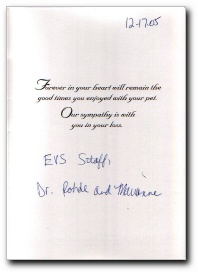 12-17-05
Forever in your heart will remain the
good times you enjoyed with your pet.
Our sympathy is with
you in your loss.
EVS Staff,
Dr. Rohde and